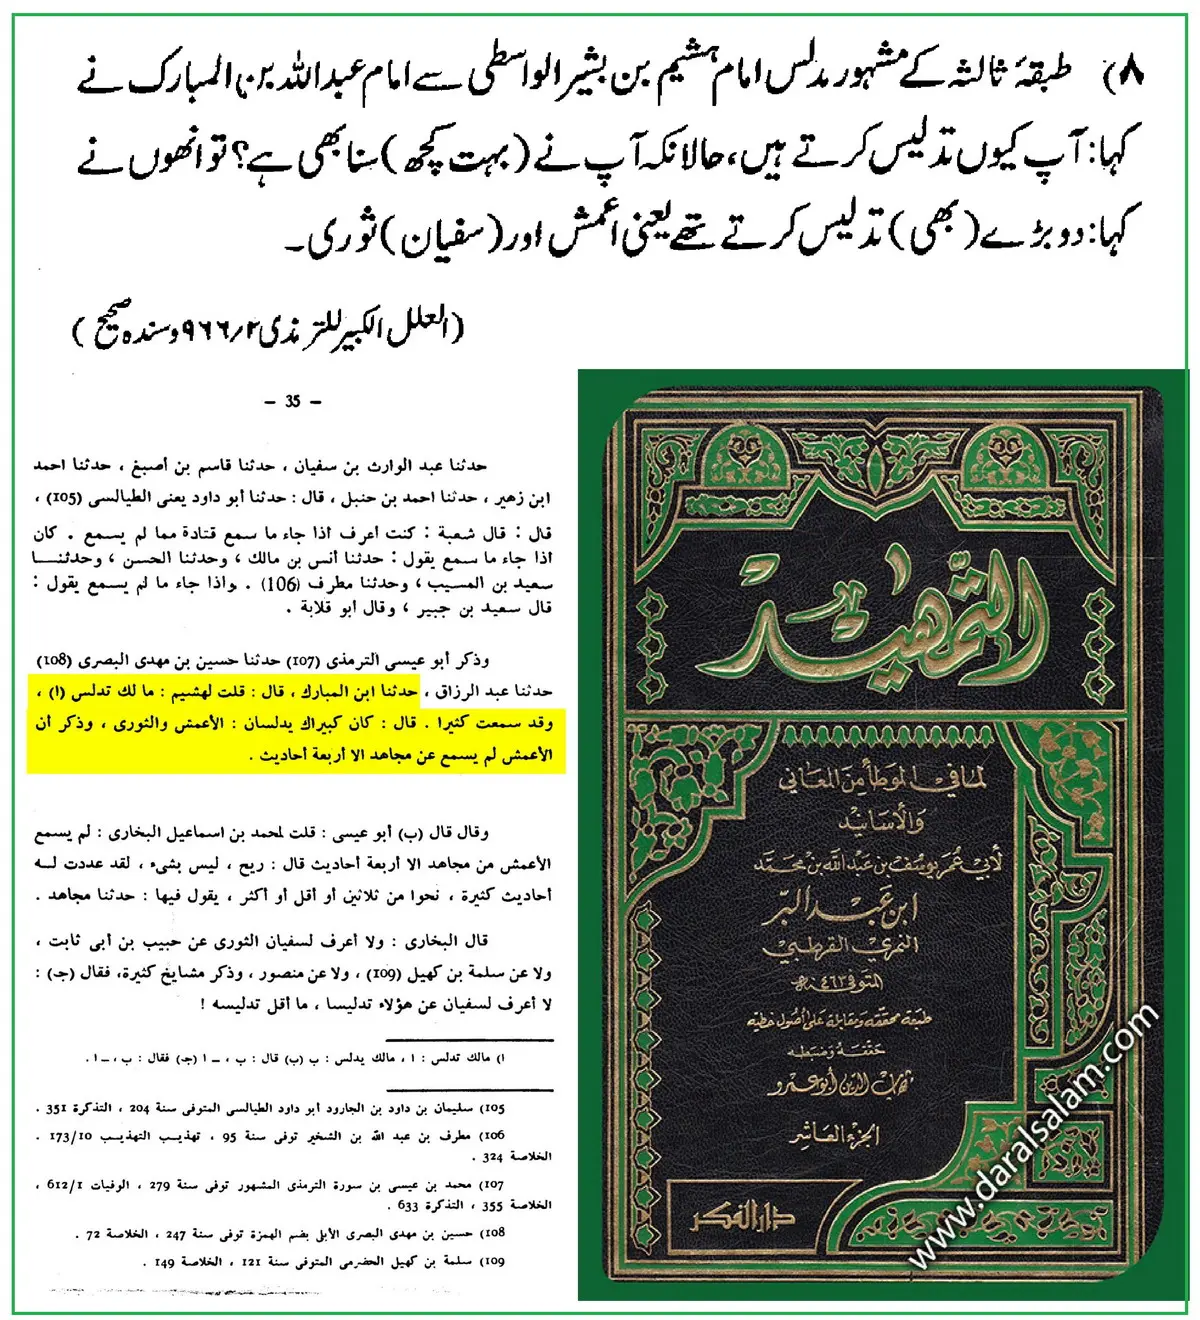 ۸) طبقۂ ثالثہ کے مشہور مدلس امام ہشیم بن بشیر الواسطی سے امام عبداللہ بن المبارک نے
کہا: آپ کیوں تدلیس کرتے ہیں، حالانکہ آپ نے (بہت کچھ) سنا بھی ہے؟ تو انھوں نے
کہا: دو بڑے (بھی) تدلیس کرتے تھے یعنی اعمش اور (سفیان) ثوری۔
(العلل الکبیر للترمذی ۲/۹۶۶ وسندہ صحیح)
— 35 —
حدثنا عبد الوارث بن سفيان ، حدثنا قاسم بن أصبغ ، حدثنا احمد
ابن زهير ، حدثنا احمد بن حنبل ، قال : حدثنا أبو داود يعنى الطيالسى (105) ،
قال : قال شعبة : كنت أعرف اذا جاء ما سمع قتادة مما لم يسمع . كان
اذا جاء ما سمع يقول : حدثنا أنس بن مالك ، وحدثنا الحسن ، وحدثنــا
سعيد بن المسيب ، وحدثنا مطرف (106) . واذا جاء ما لم يسمع يقول :
قال سعيد بن جبير ، وقال أبو قلابة .
وذكر أبو عيسى الترمذى (107) حدثنا حسين بن مهدى البصرى (108)
حدثنا عبد الرزاق ، حدثنا ابن المبارك ، قال : قلت لهشيم : ما لك تدلس (أ) ،
وقد سمعت كثيرا . قال : كان كبيراك يدلسان : الأعمش والثورى ، وذكر أن
الأعمش لم يسمع عن مجاهد الا أربعة أحاديث .
وقال قال (ب) أبو عيسى : قلت لمحمد بن اسماعيل البخارى : لم يسمع
الأعمش من مجاهد الا أربعة أحاديث قال : ريح ، ليس بشىء ، لقد عددت لــه
أحاديث كثيرة ، نحوا من ثلاثين أو أقل أو أكثر ، يقول فيها : حدثنا مجاهد .
قال البخارى : ولا أعرف لسفيان الثورى عن حبيب بن أبى ثابت ،
ولا عن سلمة بن كهيل (109) ، ولا عن منصور ، وذكر مشايخ كثيرة، فقال (جـ) :
لا أعرف لسفيان عن هؤلاء تدليسا ، ما أقل تدليسه !
ا) مالك تدلس : ا ، مالك يدلس : ب (ب) قال : ب ، ــ ا (جـ) فقال : ب ، ــ ا .
105) سليمان بن داود بن الجارود أبو داود الطيالسى المتوفى سنة 204 ، التذكرة 351 .
106) مطرف بن عبد الله بن الشخير توفى سنة 95 ، تهذيب التهذيب 173/10 .
الخلاصة 324 .
107) محمد بن عيسى بن سورة الترمذى المشهور توفى سنة 279 ، الوفيات 612/1 ،
الخلاصة 355 ، التذكرة 633 .
108) حسين بن مهدى البصرى الأبلى بضم الهمزة توفى سنة 247 ، الخلاصة 72 .
109) سلمة بن كهيل الحضرمى المتوفى سنة 121 ، الخلاصة 149 .
التمهيد
لما في الموطأ من المعاني
والأسانيد
لأبي عمر يوسف بن عبد الله بن محمد
ابن عبد البر
النمري القرطبي
المتوفى ٤٦٣ هـ
طبعة محققة ومقابلة على أصول خطية
حققه وضبطه
شهاب الدين أبو عمرو
الجزء العاشر
دار الفكر
www.daralsalam.com